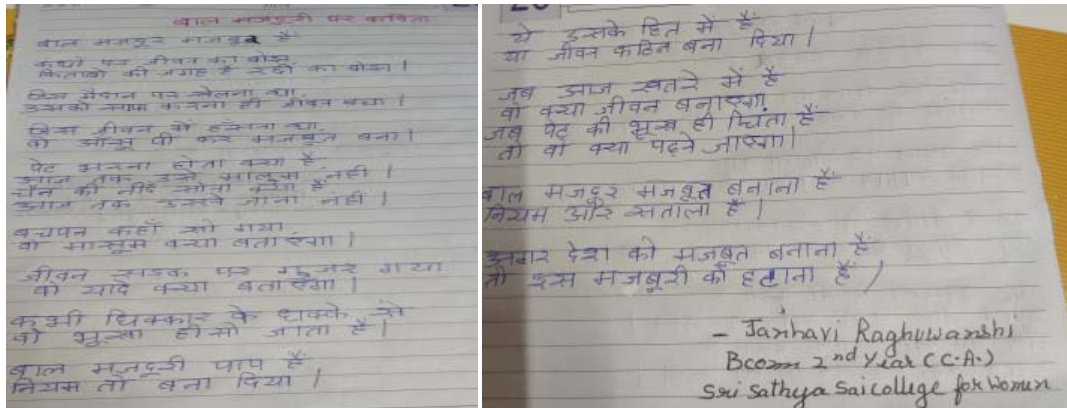 बाल मजदूरी पर कविता
बाल मजदूर मजबूर है
कंधो पर जीवन का बोझ
किताबो की जगह है रद्दी का बोझ।
जिस मैदान पर खेलना था
उसको साफ करना ही जीवन बना।
जिस जीवन में हँसना था
वो आँसू पी कर मजबूत बना।
पेट भरना होता क्या है
आज तक उसे मालूम नहीं।
चैन की नींद सोना क्या है
आज तक उसने जाना नहीं।
बचपन कहाँ खो गया
वो मासूम क्या बताएगा।
जीवन सड़क पर गुजर गया
वो यादे क्या बताएगा।
कभी धिक्कार के धक्के से
वो भूखा ही सो जाता है।
बाल मजदूरी पाप है
नियम तो बना दिया।
ये उसके हित में है
या जीवन कठिन बना दिया।
जब आज खतरे में है
वो क्या जीवन बनाएगा
जब पेट की भूख ही चिंता है
तो वो क्या पढ़ने जाएगा।
बाल मजदूर मजबूत बनाना है
नियम और सताला है।
अगर देश को मजबूत बनाना है
तो इस मजबूरी को हटाना है।
- Janhavi Raghuwanshi
Bcom 2nd Year (C.A.)
Sri Sathya Sai college for Women